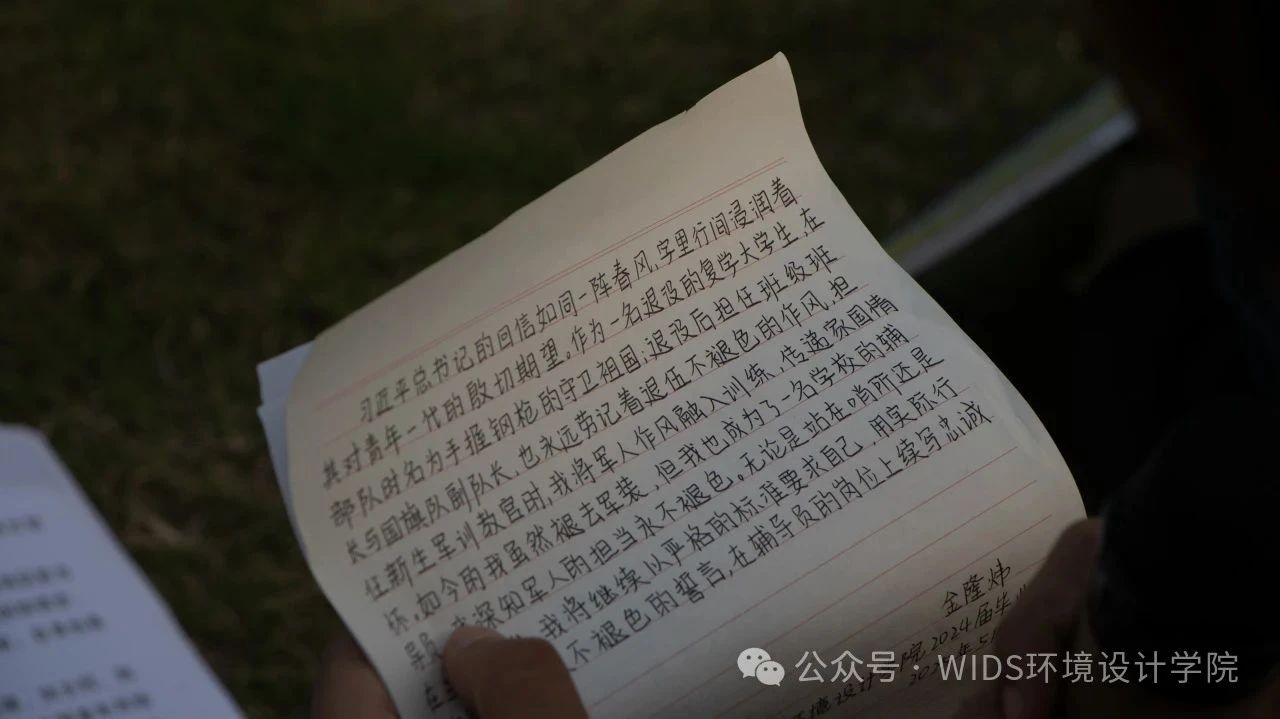 习近平总书记的回信如同一阵春风,字里行间浸润着
其对青年一代的殷切期望。作为一名退役的复学大学生,在
部队时名为手握钢枪的守卫祖国;退役后担任班级班
长与国旗队副队长,也永远劳记着退伍不褪色的作风,担
任新生军训教官时,我将军人作风融入训练,传递家国情
怀。如今的我虽然褪去军装,但我也成为了一名学校的辅
导员,深知军人的担当永不褪色。无论是站在哨所还是
在 我将继续以严格的标准要求自己,用实际行
不褪色的誓言,在辅导员的岗位上续写忠诚
金隆炜
环境设计学院2024届毕业
公众号·WIDS环境设计学院